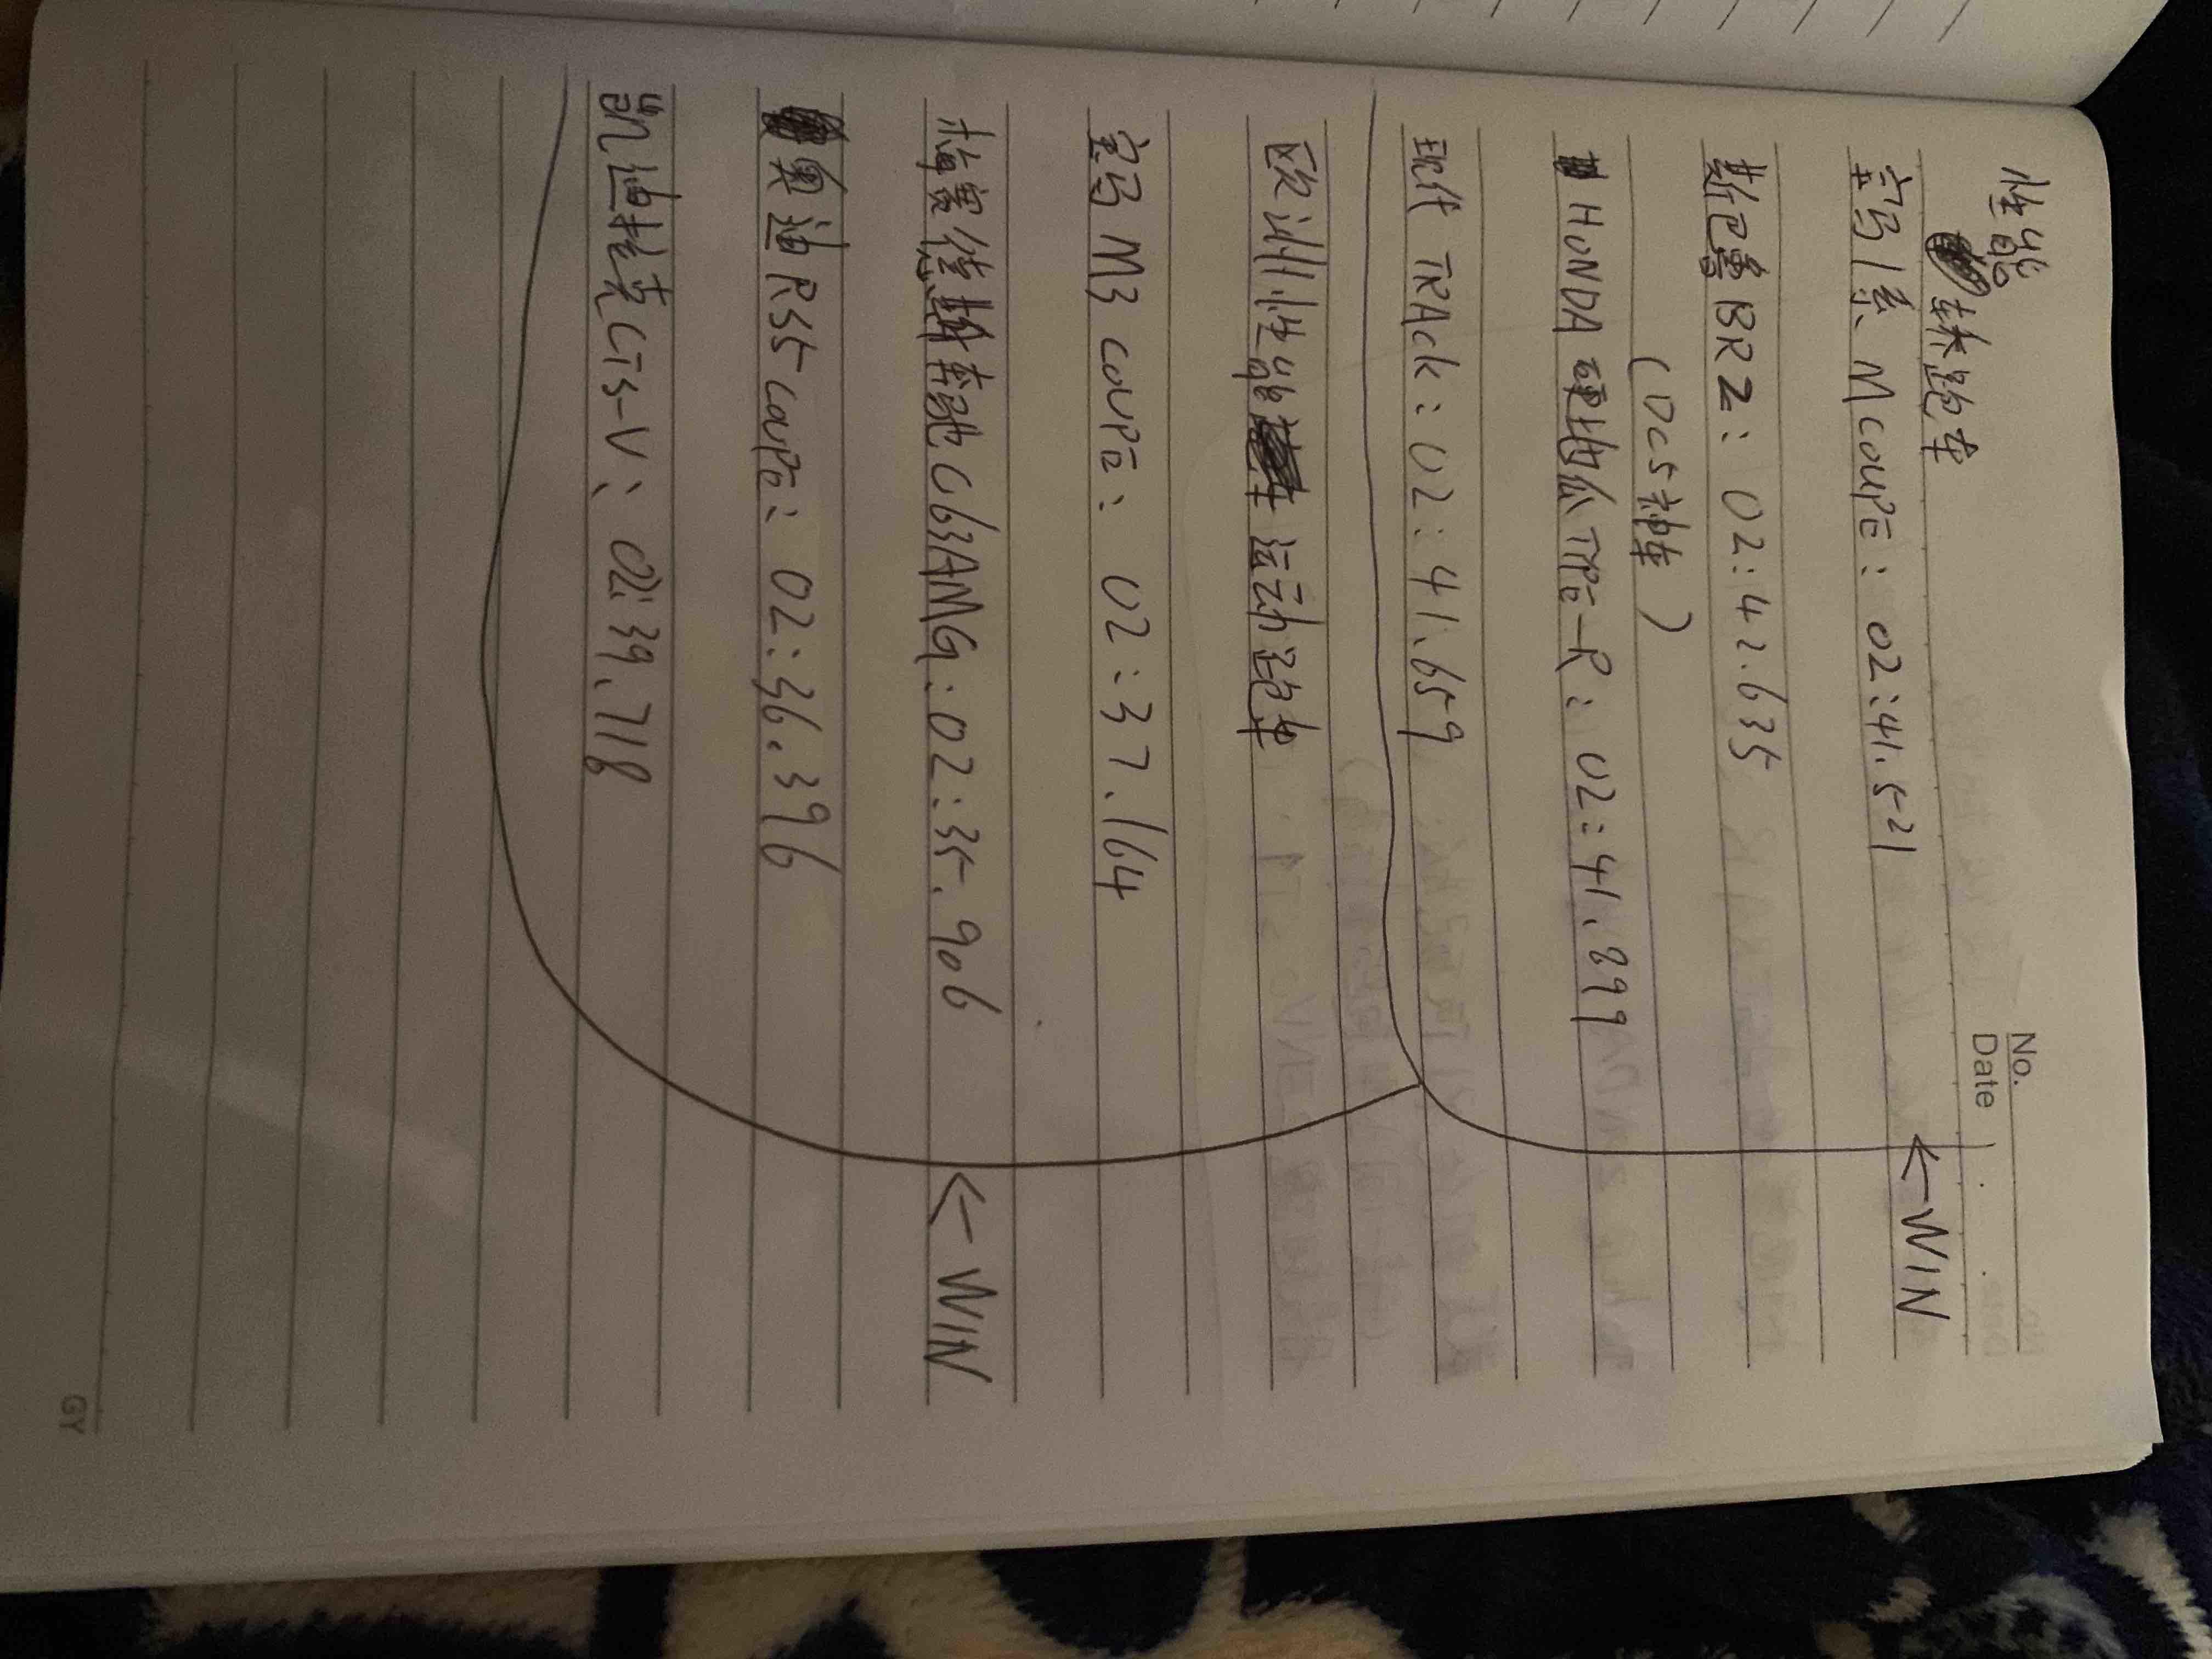 No.
Date
性能
轶跑车
宝马1系 M COUPE: 02:41.521 ←WIN
斯巴鲁BRZ: 02:42.635
(DC5神车)
HONDA 硬地瓜 TYPE-R: 02:41.899
现代 TRACK: 02:41.659
欧洲性能 运动跑车
宝马 M3 COUPE: 02:37.164
梅赛德斯奔驰C63AMG: 02:35.906 ←WIN
奥迪RS5 COUPE: 02:36.396
凯迪拉克CTS-V: 02:39.718
GY